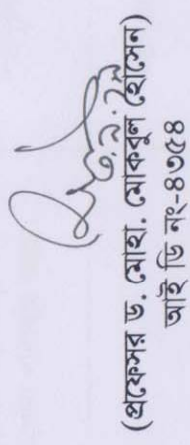 (প্রফেসর ড. মোহা. মোকবুল হোসেন)
আই ডি নং-৪৩৫৪